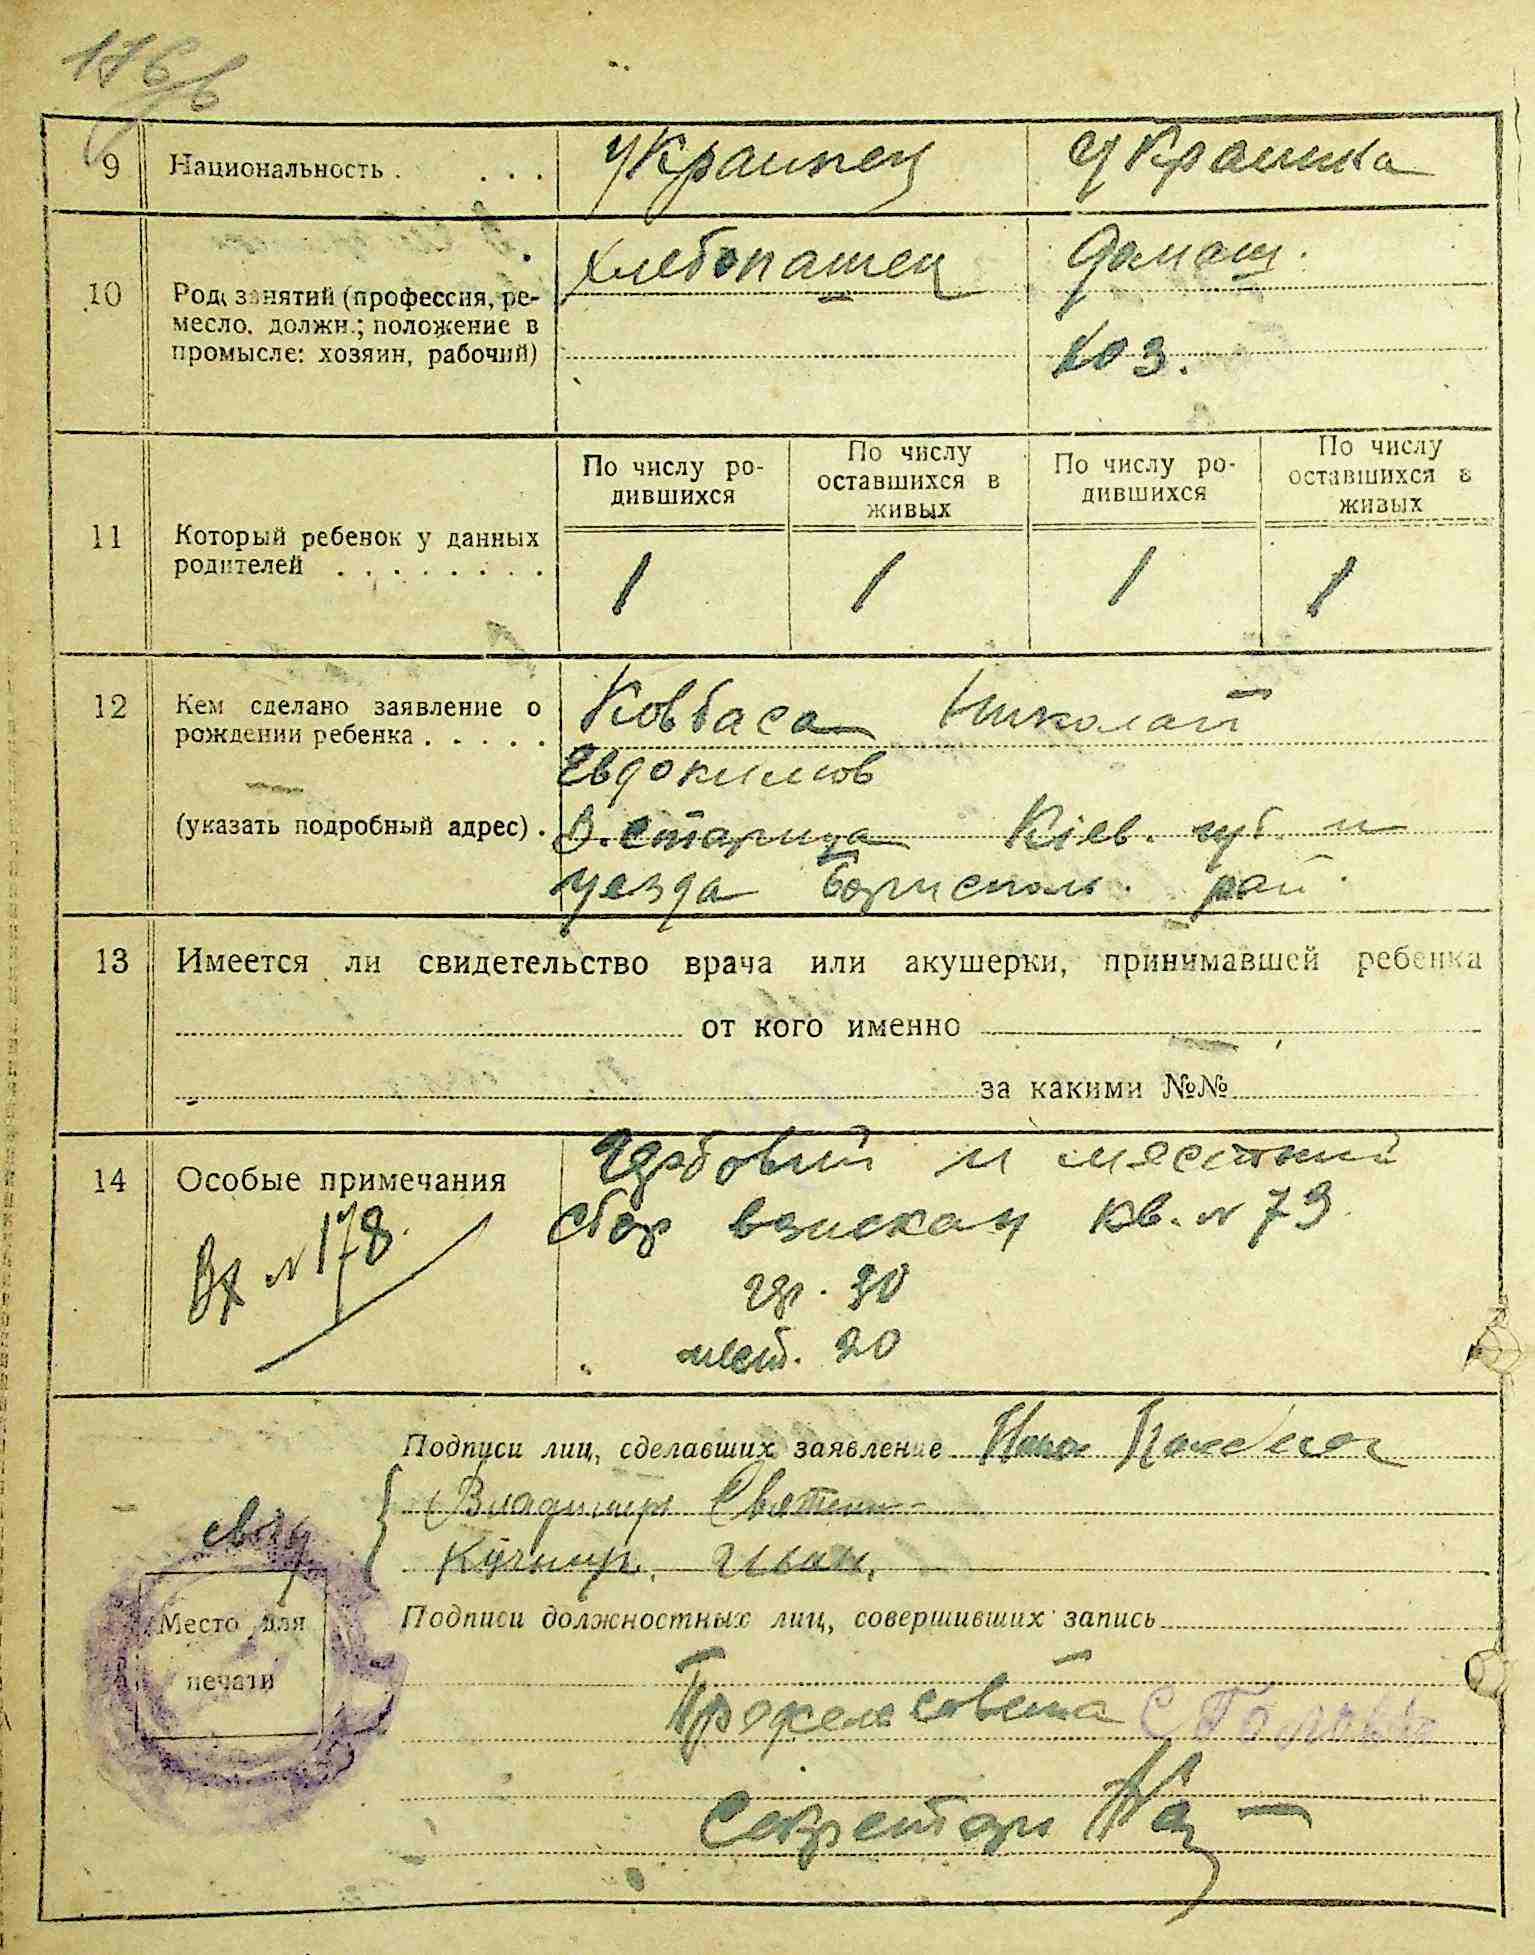 9 Национальность . . . . украинец украинка
10 Род занятий (профессия, ре-
месло, должн.; положение в
промысле: хозяин, рабочий)
хлебопашец
домаш.
хоз.
11 Который ребенок у данных
родителей . . . . . . . .
По числу ро-
дившихся
По числу
оставшихся в
живых
По числу ро-
дившихся
По числу
оставшихся в
живых
1 1 1 1
12 Кем сделано заявление о
рождении ребенка . . . . .
(указать подробный адрес) .
Ковбаса Николай
Евдокимов
В. старица Кіев. губ. и
уезда Борисполь. рай.
13 Имеется ли свидетельство врача или акушерки, принимавшей ребенка
от кого именно
за какими №№
14 Особые примечания
Вх № 178.
Гербовий и местний
сбор взискан кв. № 79
гер. 30
мест. 20
Подписи лиц, сделавших заявление
свид { Владимир
Кучнир. Иван.
Место для
печати
Подписи должностных лиц, совершивших запись
Предсельсовета
Секретарь